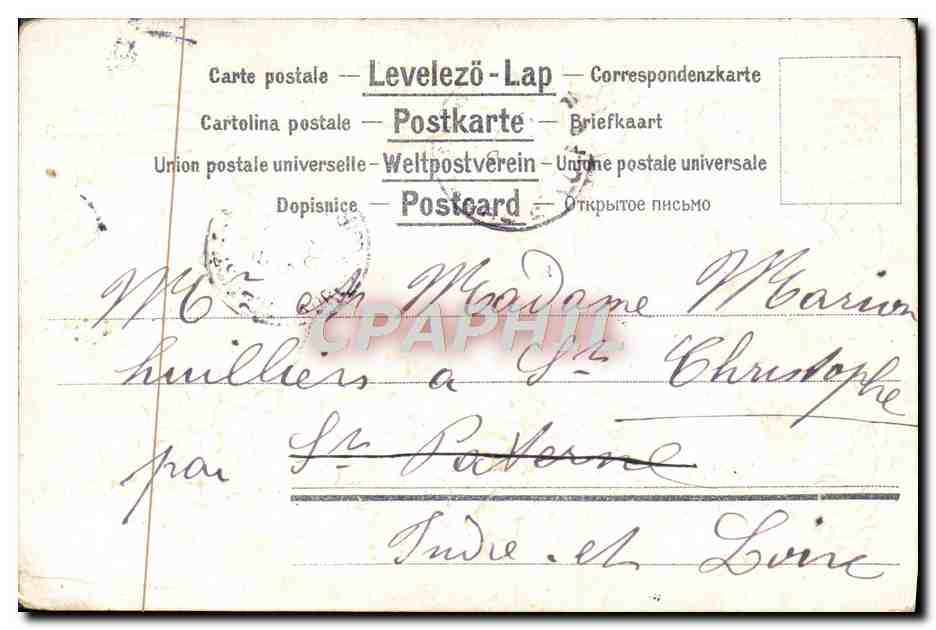 Carte postale — Levelezö-Lap — Correspondenzkarte
Cartolina postale — Postkarte — Briefkaart
Union postale universelle — Weltpostverein — Unione postale universale
Dopisnice — Postcard — Открытое письмо
Mr et Madame Marion
huilliers a St Christophe
par St Paterne
Indre et Loire
CPAPHIL